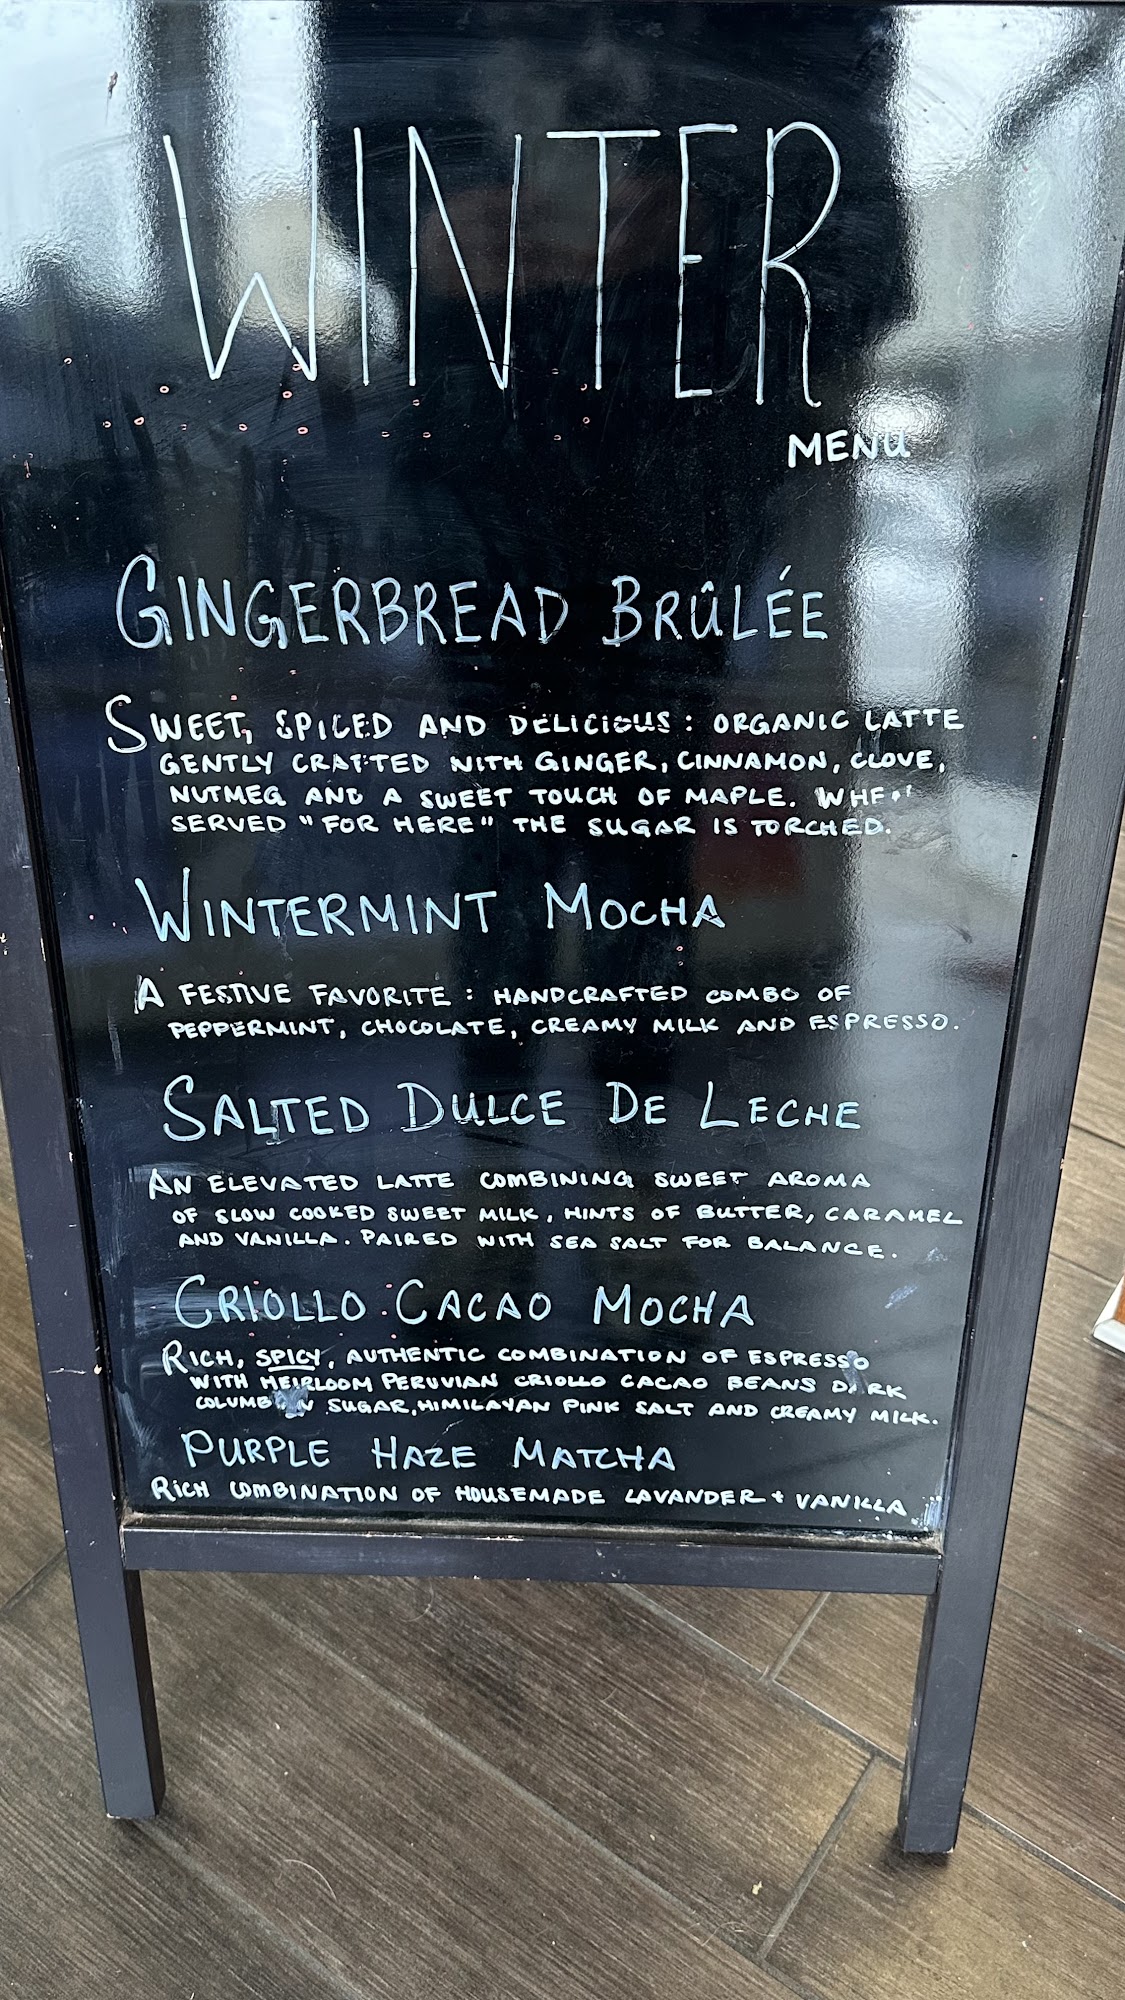 WINTER
MENU
GINGERBREAD BRÛLÉE
SWEET, SPICED AND DELICIOUS: ORGANIC LATTE
GENTLY CRAFTED WITH GINGER, CINNAMON, CLOVE,
NUTMEG AND A SWEET TOUCH OF MAPLE.
SERVED "FOR HERE" THE SUGAR IS TORCHED.
WINTERMINT MOCHA
A FESTIVE FAVORITE: HANDCRAFTED COMBO OF
PEPPERMINT, CHOCOLATE, CREAMY MILK AND ESPRESSO.
SALTED DULCE DE LECHE
AN ELEVATED LATTE COMBINING SWEET AROMA
OF SLOW COOKED SWEET MILK, HINTS OF BUTTER, CARAMEL
AND VANILLA. PAIRED WITH SEA SALT FOR BALANCE.
CRIOLLO CACAO MOCHA
RICH, SPICY, AUTHENTIC COMBINATION OF ESPRESSO
WITH HEIRLOOM PERUVIAN CRIOLLO CACAO BEANS DARK
SUGAR, HIMILAYAN PINK SALT AND CREAMY MILK.
PURPLE HAZE MATCHA
RICH COMBINATION OF HOUSEMADE LAVANDER + VANILLA